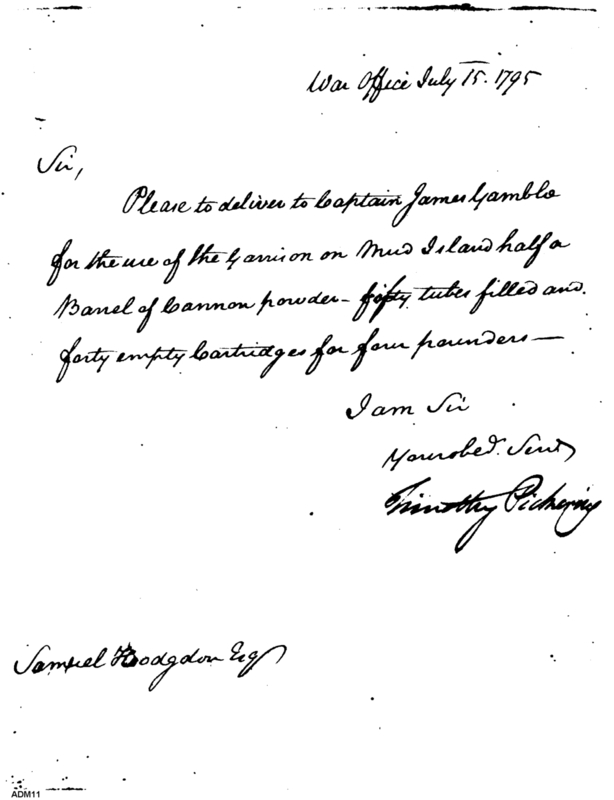 War Office July 15. 1795
Sir,
Please to deliver to Captain James Gamble
for the use of the Garrison on Mud Island half a
Barrel of Cannon powder – fifty tubes filled and
forty empty Cartridges for four pounders —
I am Sir
Your obed. Servt
Timothy Pickering
Samuel Hodgdon Esq
ADM11